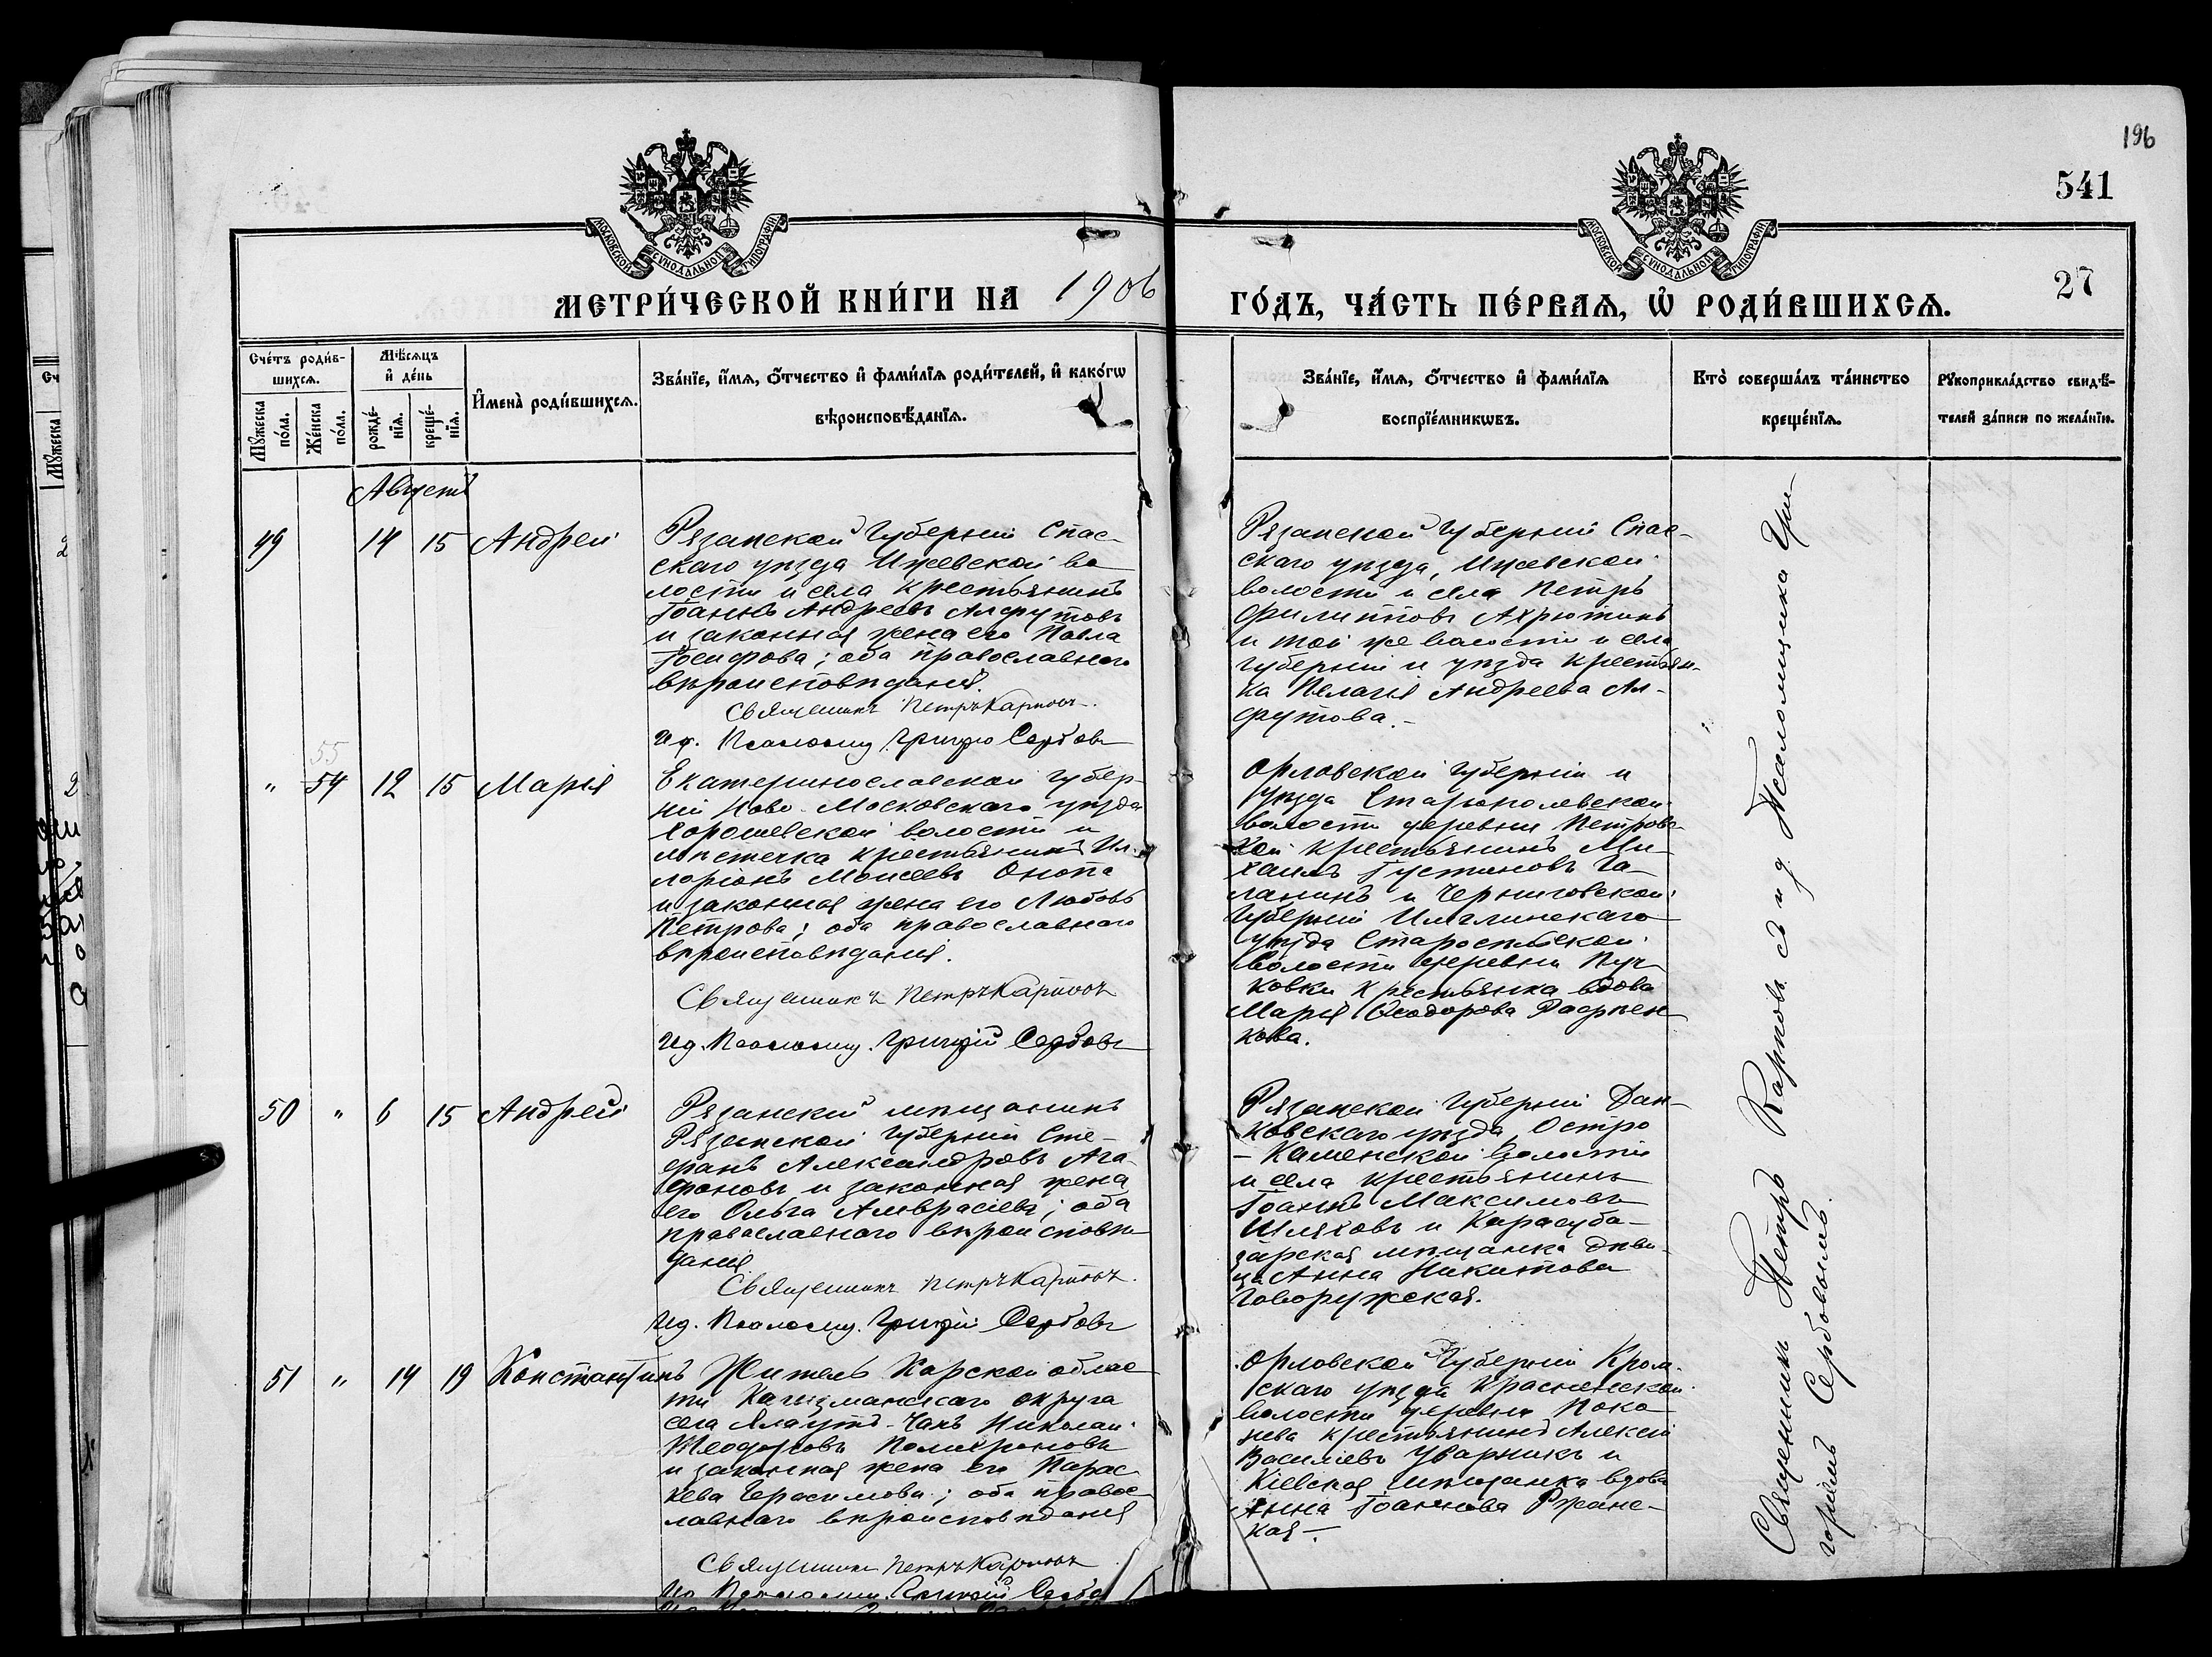 196
541
27
МОСКОВСКОЙ СѴНОДАЛЬНОЙ ТИПОГРАФІИ
МОСКОВСКОЙ СѴНОДАЛЬНОЙ ТИПОГРАФІИ
МЕТРИ́ЧЕСКОЙ КНИ́ГИ НА 1906
ГО́ДЪ, ЧА́СТЬ ПЕ́РВАѦ, Ѡ҆ РОДИ́ВШИХСѦ.
Сче́тъ роди́в-
шихсѧ.
Мꙋ́жеска по́ла.
Же́нска по́ла.
Мѣ́сѧцъ
и҆ де́нь
рожде́-
нїѧ.
креще́-
нїѧ.
И҆мена̀ роди́вшихсѧ.
Зва́нїе, и҆́мѧ, ѻ҆́тчество и҆ фами́лїѧ роди́телей, и҆ како́гѡ
вѣроисповѣ́данїѧ.
Зва́нїе, и҆́мѧ, ѻ҆́тчество и҆ фами́лїѧ
воспрїе́мникѡвъ.
Кто̀ соверша́лъ та́инство
креще́нїѧ.
Рꙋкоприкла́дство свидѣ́-
телей за́писи по жела́нїю.
Августъ
49 14 15 Андрей
Рязанской Губерніи Спас-
скаго уѣзда Ижевской во
лости и села крестьянинъ
Іоаннъ Андреевъ Алфутовъ
и законная жена его Павла
Іосифова; оба православнаго
вѣроисповѣданія.
Священникъ Петръ Карповъ.
Ид. Псаломщ. Григорій Сербовъ
Рязанской Губерніи Спас-
скаго уѣзда, Ижевской
волости и села Петръ
Филипповъ Ахрютинъ
и той же волости и села
губерніи и уѣзда крестьян-
ка Пелагія Андреева Ал-
футова.-
55
" 54 12 15 Марія
Екатеринославской губер-
ніи Ново-Московскаго уѣзда
Хорошевской волости и
мѣстечка крестьянинъ Ил-
ларіонъ Моисеевъ Онопа
и законная жена его Любовь
Петрова; оба православнаго
вѣроисповѣданія.
Священникъ Петръ Карповъ
Ид. Псаломщ. Григорій Сербовъ
Орловской губерніи и
уѣзда Старопольевской
волости деревни Петровс-
кой крестьянинъ Ми-
хаилъ Густиновъ Га-
ланинъ и Черниговской
Губерніи Имглинскаго
уѣзда Старосельской
волости деревни Пуч-
ковки крестьянка вдова
Марія Ѳеодорова
кова.
50 " 6 15 Андрей
Рязанскій мѣщанинъ
Рязанской Губерніи Сте-
фанъ Александровъ Ага-
фоновъ и законная жена
его Ольга Амврасіева; оба
православнаго вѣроисповѣ-
данія.
Священникъ Петръ Карповъ.
Ид. Псаломщ. Григорій Сербовъ
Рязанской Губерніи Дан-
ковскаго уѣзда Остро
-Каменской волости
и села крестьянинъ
Іоаннъ Максимовъ
Шляховъ и Карасуба-
зарская мѣщанка дѣви-
ца Анна Никитова
Говоружская.
51 " 14 19 Константинъ
Житель Карской облас
ти Кагызманскаго округа
села Ялаутъ-Чамъ Николай
Ѳеодоровъ Полихроновъ
и законная жена его Парас
кева Герасимова; оба правос-
лавнаго вѣроисповѣданія
Священникъ Петръ Карповъ
Ид. Псаломщ. Григорій Сербовъ
Орловской Губерніи Кром-
скаго уѣзда
волости деревни
крестьянинъ Алексій
Василіевъ Уварникъ и
Кіевская мѣщанка вдова
Анна Іоаннова Ржанс-
кая-
Священникъ Петръ Карповъ съ и д Псаломщика Гри-
горіемъ Сербовымъ.